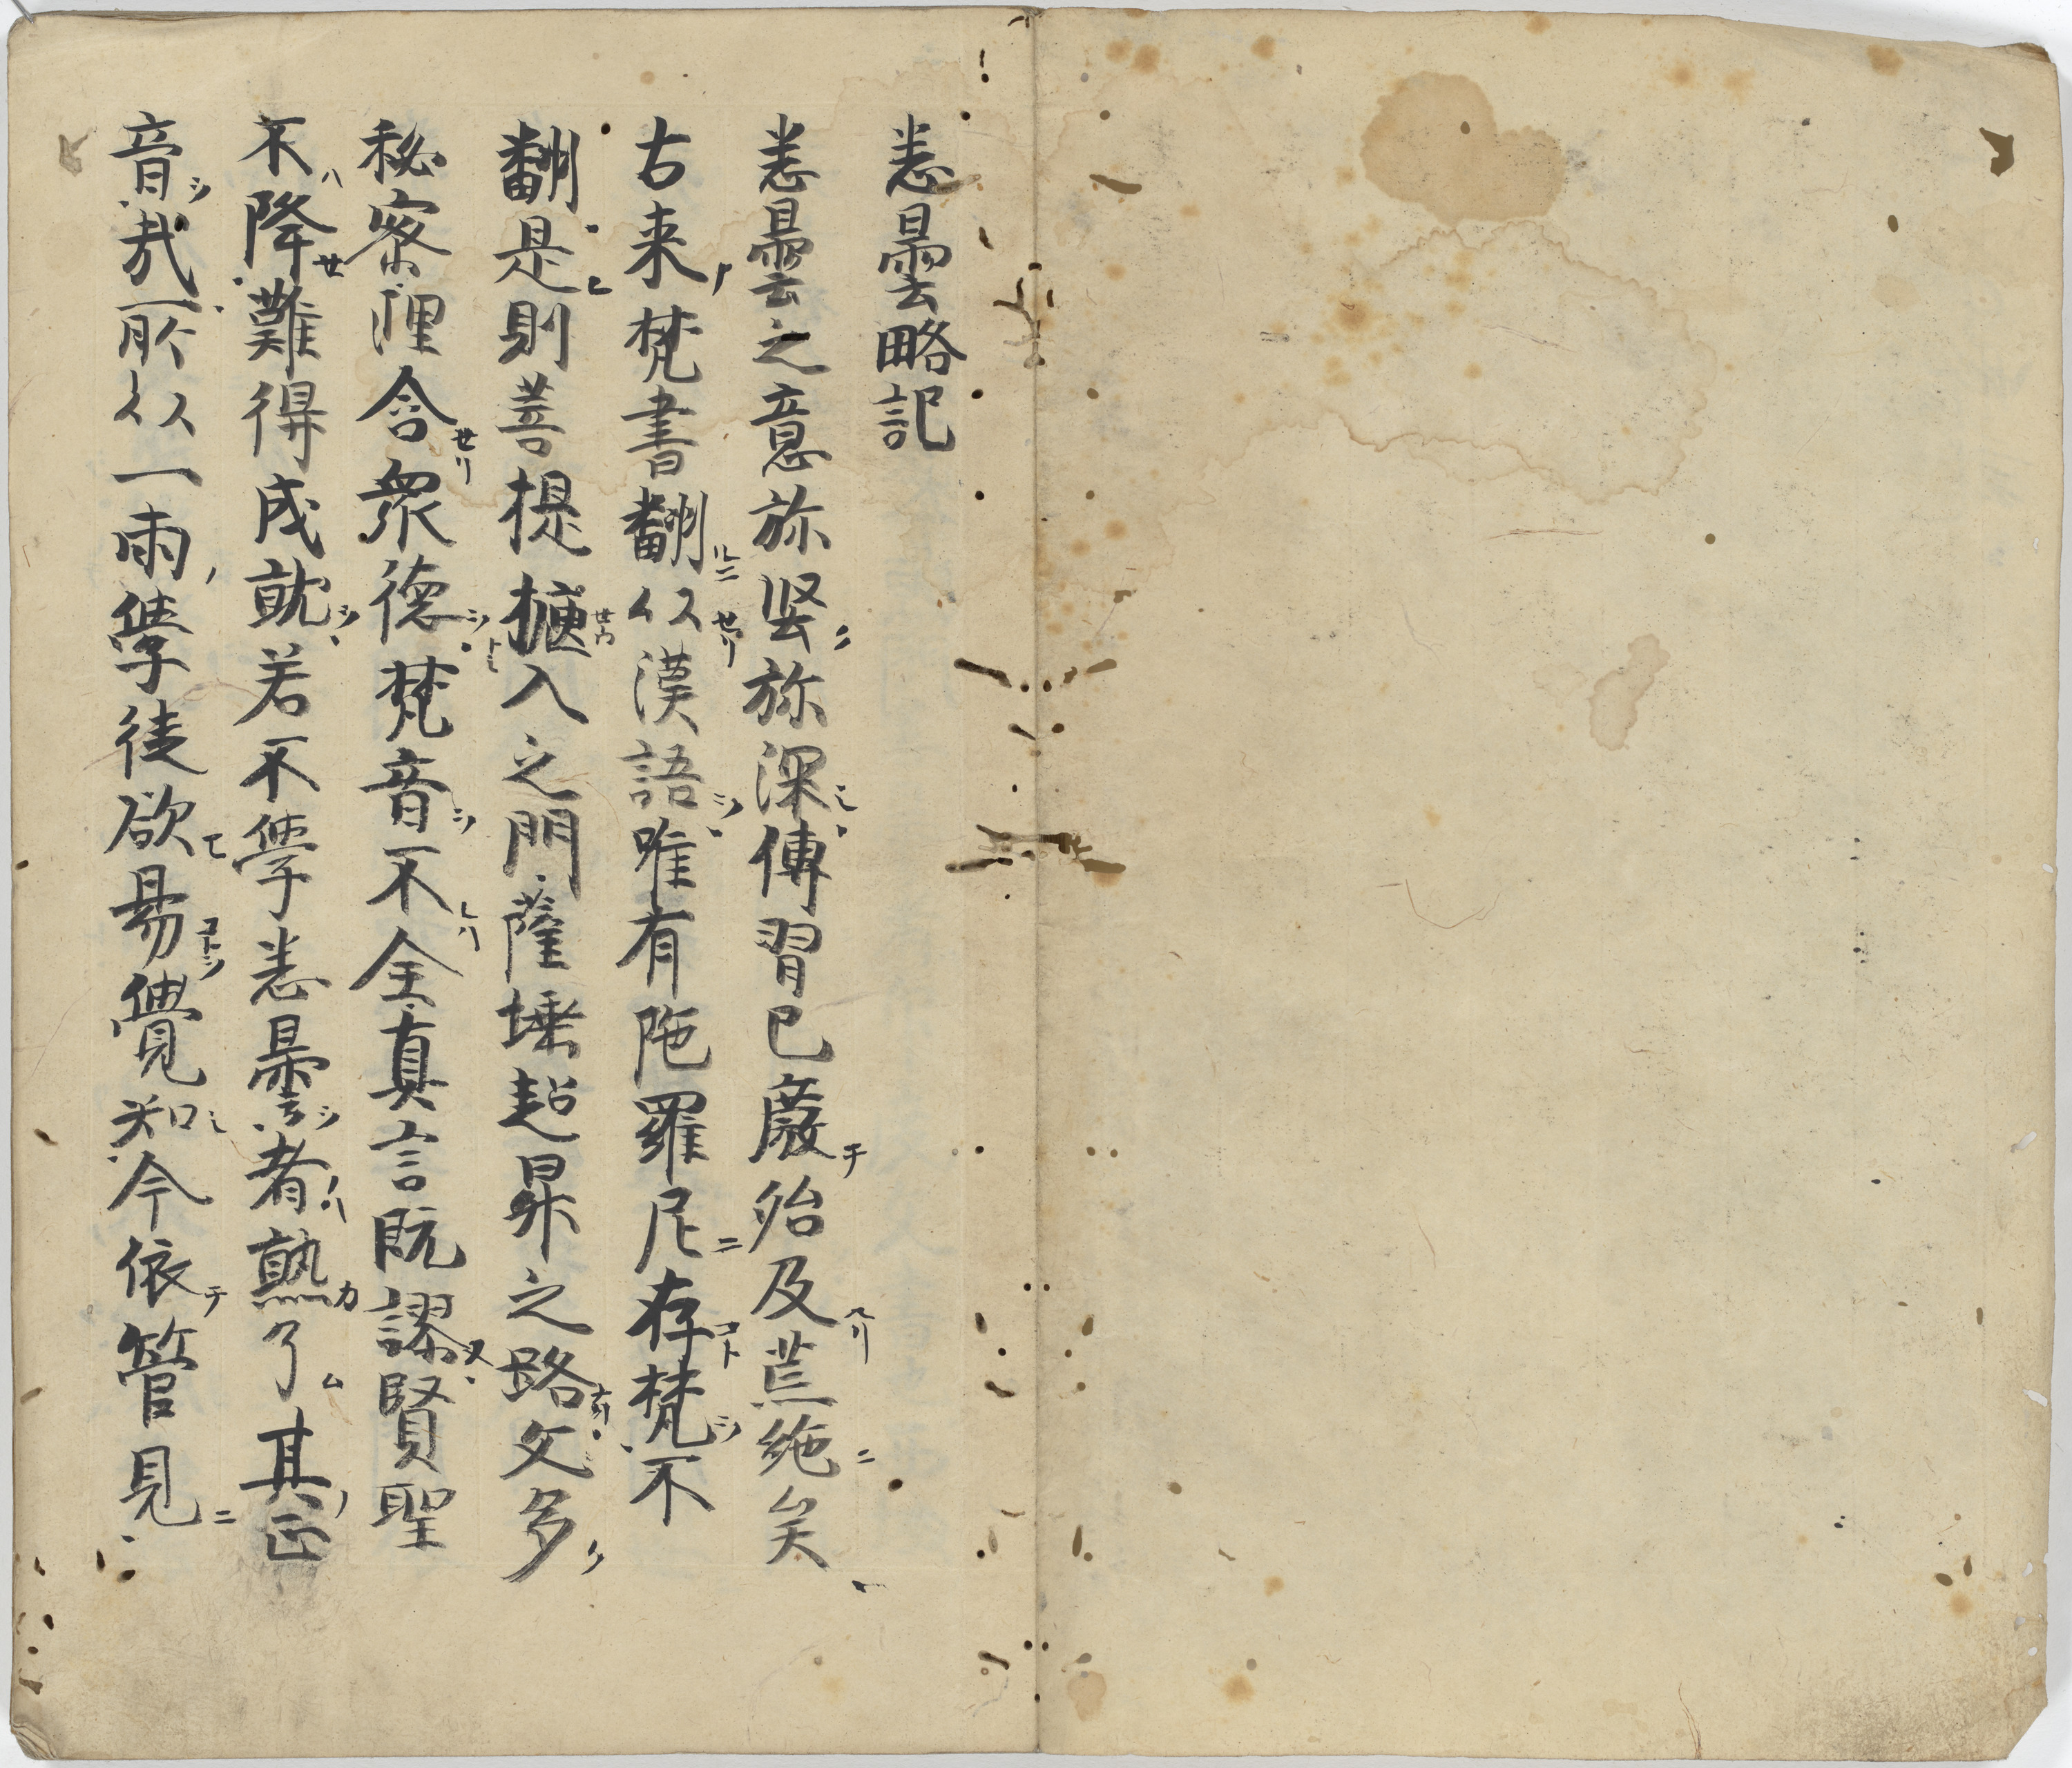 悉曇略記
悉曇之意弥堅弥深傳習已廢殆及荒絁矣
古来梵書翻以漢語唯有陁羅尼存梵不
翻是則菩提撗入之門薩埵超昇之路文多
秘密理含衆德梵音不全真言既謬賢聖
不降難得成就若不學悉曇者熟了其正
音哉所以一両學徒欲易覺知今依管見